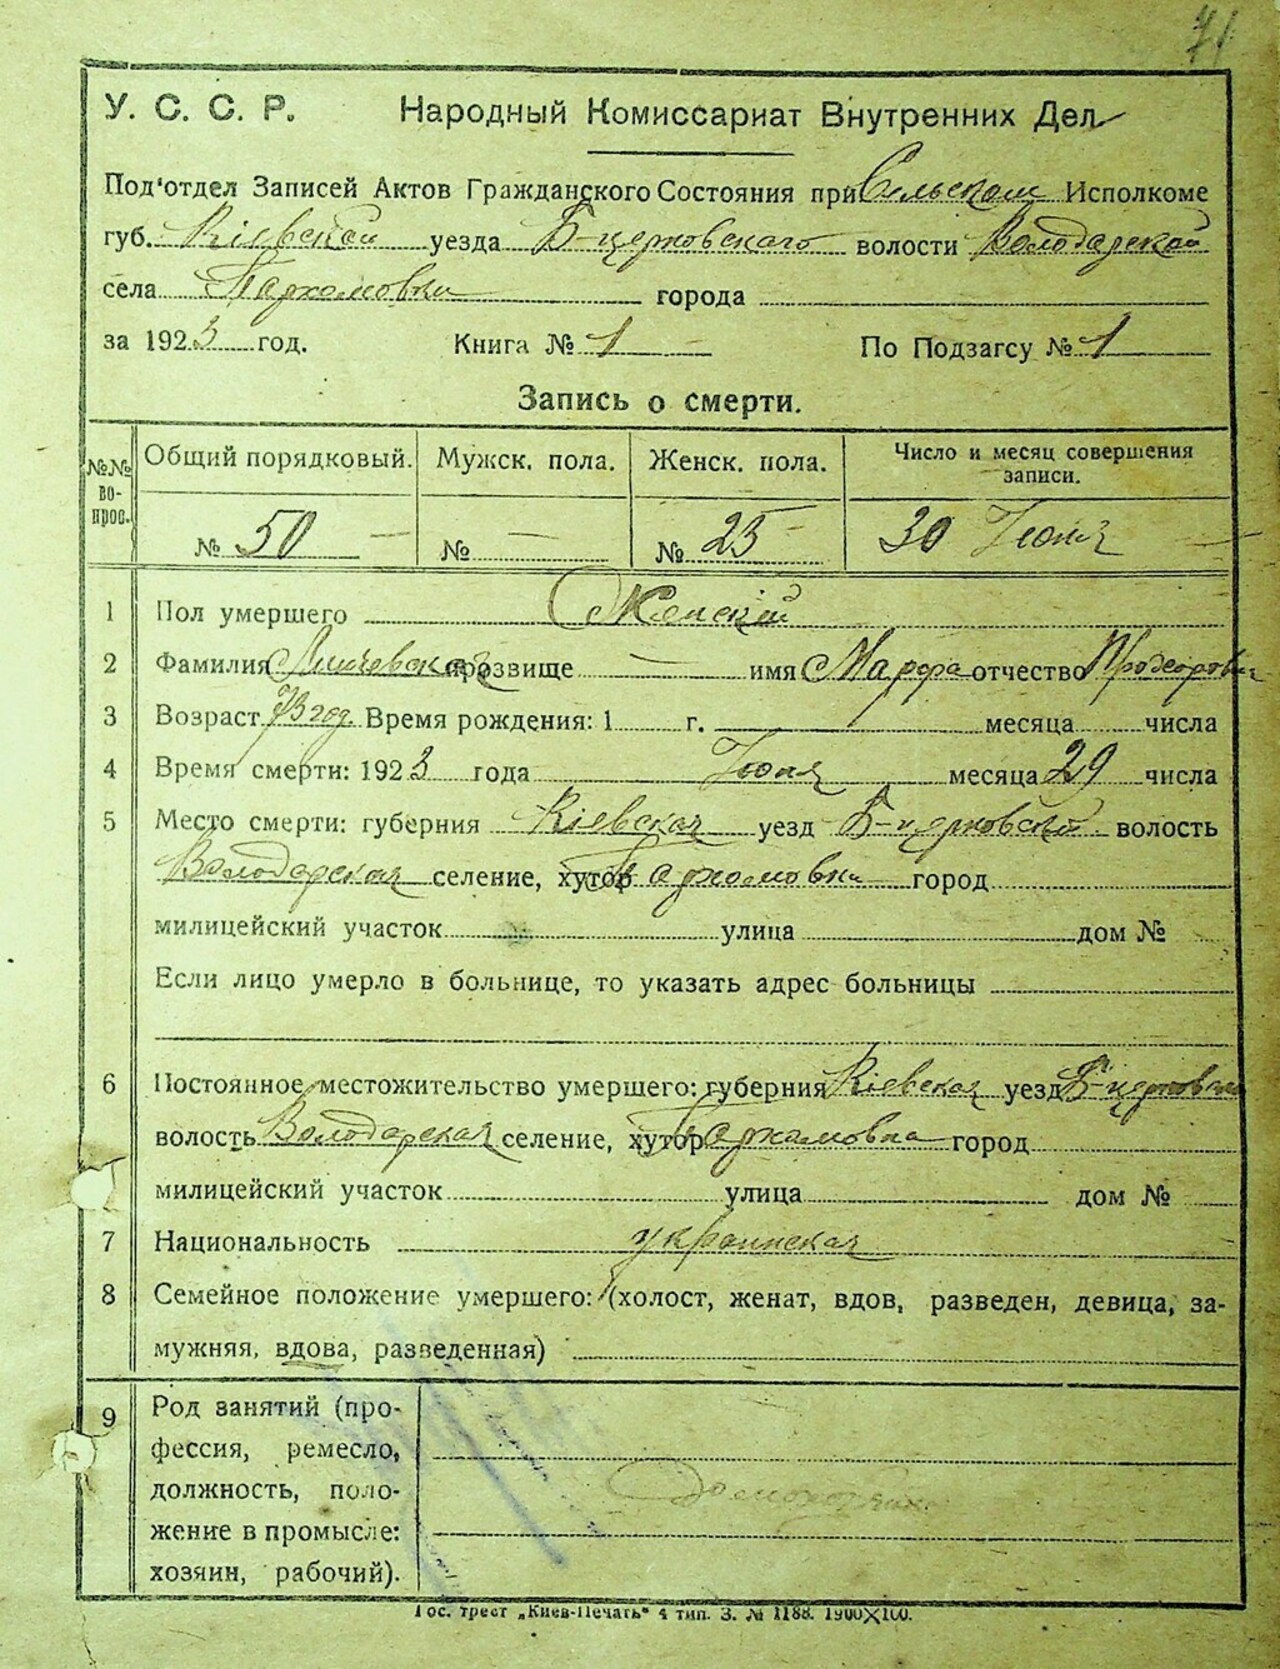 71
У. С. С. Р. Народный Комиссариат Внутренних Дел
Под'отдел Записей Актов Гражданского Состояния при Сельском Исполкоме
губ. Кіевской уезда Б-церковского волости Володарской
села Пархомовки города
за 1923 год. Книга № 1 По Подзагсу № 1
Запись о смерти.
№№ во-прос. Общий порядковый. Мужск. пола. Женск. пола. Число и месяц совершения записи.
№ 50 — № — № 25 — 30 Іюня —
1 Пол умершего Женский
2 Фамилия прозвище — имя Марфа отчество
3 Возраст 73 год. Время рождения: 1 г. месяца числа
4 Время смерти: 1923 года Іюня месяца 29 числа
5 Место смерти: губерния Кіевская уезд Б-церковский волость
Володарская селение, хутор Пархомовка город
милицейский участок улица дом №
Если лицо умерло в больнице, то указать адрес больницы
6 Постоянное местожительство умершего: губерния Кіевская уезд Б-церковский
волость Володарская селение, хутор Пархомовка город
милицейский участок улица дом №
7 Национальность украинская
8 Семейное положение умершего: (холост, женат, вдов, разведен, девица, за-
мужняя, вдова, разведенная)
9 Род занятий (про-
фессия, ремесло,
должность, поло-
жение в промысле:
хозяин, рабочий).
Гос. трест „Киев-Печать" 4 тип. З. № 1188. 1900×100.